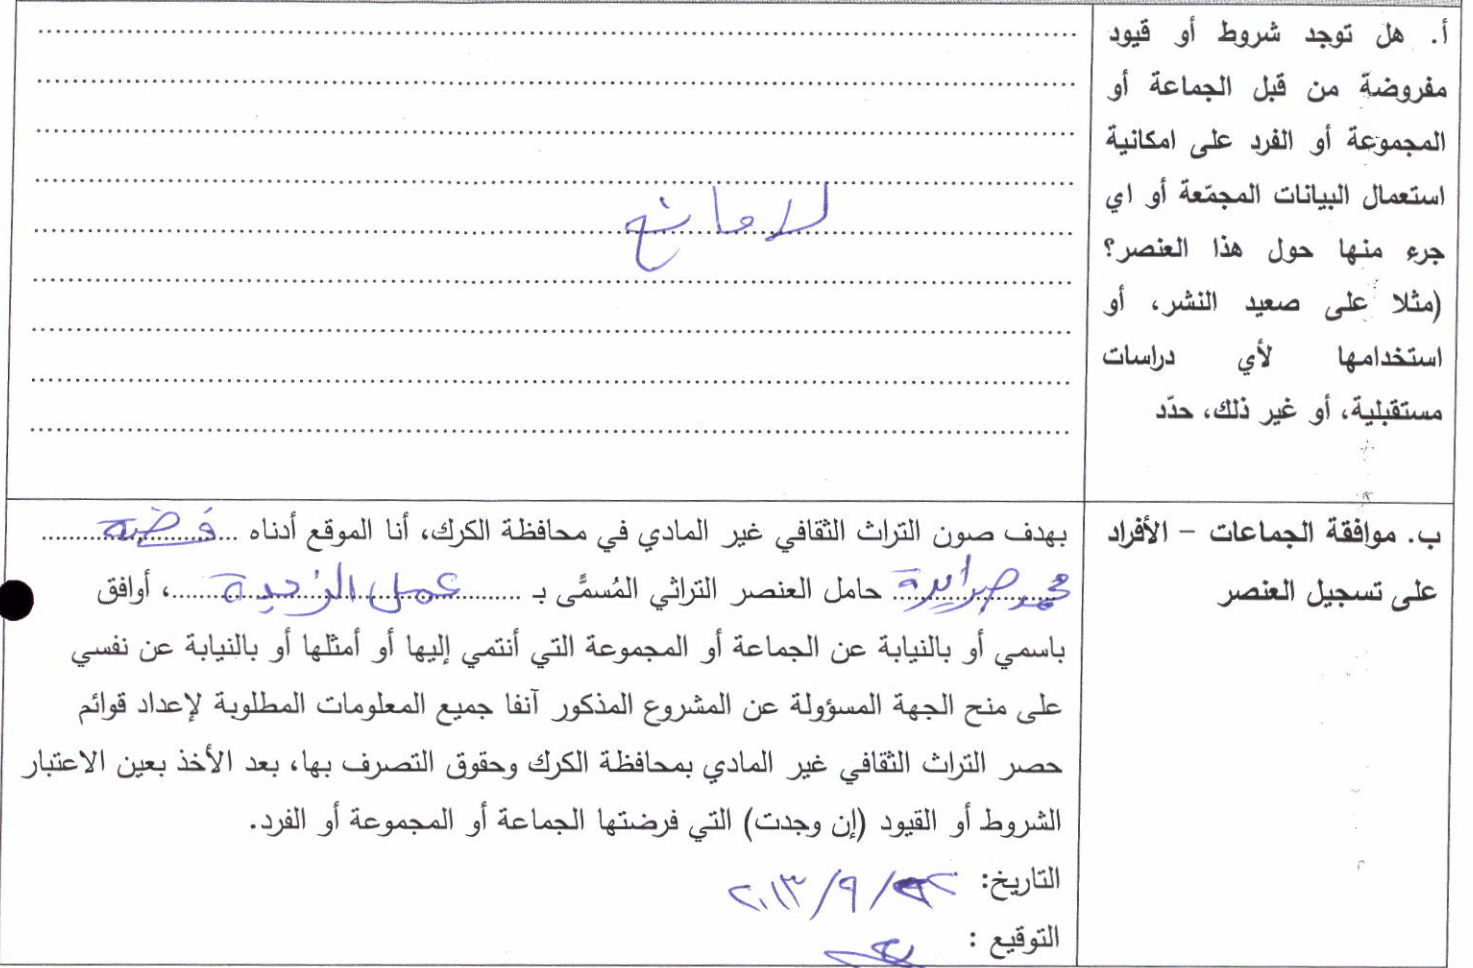 أ. هل توجد شروط أو قيود
مفروضة من قبل الجماعة أو
المجموعة أو الفرد على امكانية
استعمال البيانات المجمّعة أو اي
جرء منها حول هذا العنصر؟
(مثلا على صعيد النشر، أو
استخدامها لأي دراسات
مستقبلية، أو غير ذلك، حدّد
لا مانع
ب. موافقة الجماعات - الأفراد
على تسجيل العنصر
بهدف صون التراث الثقافي غير المادي في محافظة الكرك، أنا الموقع أدناه فضية
محمد صرايرة حامل العنصر التراثي المُسمَّى بـ عمل الزحية، أوافق
باسمي أو بالنيابة عن الجماعة أو المجموعة التي أنتمي إليها أو أمثلها أو بالنيابة عن نفسي
على منح الجهة المسؤولة عن المشروع المذكور آنفا جميع المعلومات المطلوبة لإعداد قوائم
حصر التراث الثقافي غير المادي بمحافظة الكرك وحقوق التصرف بها، بعد الأخذ بعين الاعتبار
الشروط أو القيود (إن وجدت) التي فرضتها الجماعة أو المجموعة أو الفرد.
التاريخ: /٩/٢٠١٣
التوقيع :